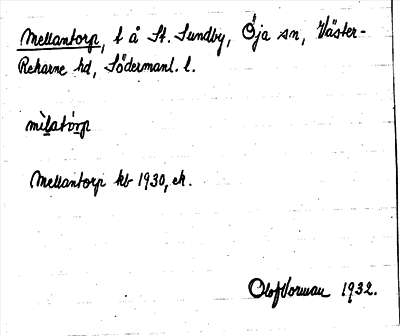 Mellantorp, t å St. Sundby, Öja sn, Väster-
Rekarne hd, Södermanl. l.
Mellantorp kb 1930, ek.
Olof Vorman 1932.